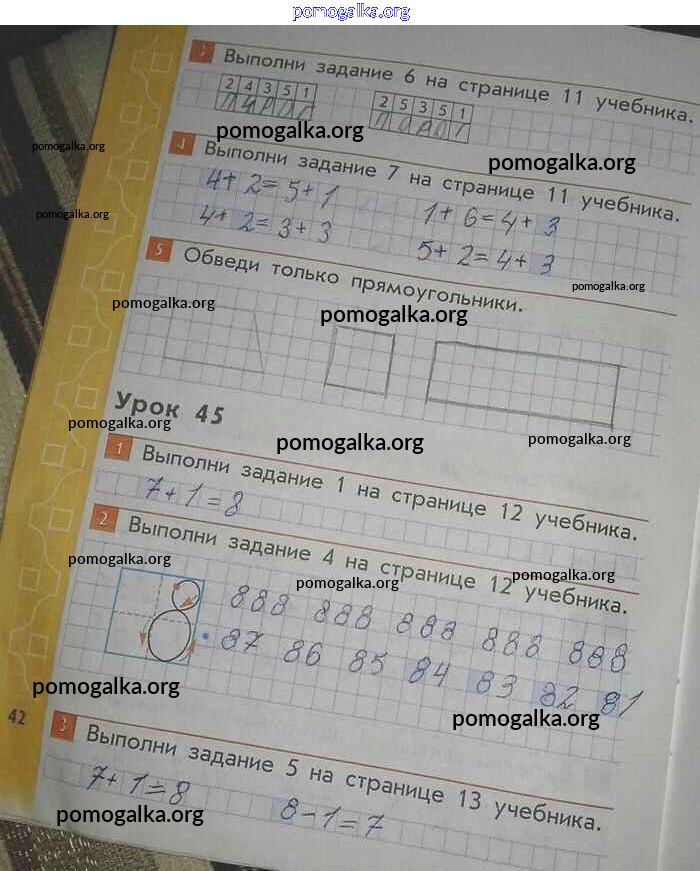 pomogalka.org
3 Выполни задание 6 на странице 11 учебника.
2 4 3 5 1
2 5 3 5 1
pomogalka.org
pomogalka.org
pomogalka.org
4 Выполни задание 7 на странице 11 учебника.
4+ 2= 5+ 1
1+ 6=4+ 3
pomogalka.org
4+ 2=3+ 3
5+ 2=4+ 3
5 Обведи только прямоугольники.
pomogalka.org
pomogalka.org
pomogalka.org
Урок 45
pomogalka.org
pomogalka.org
pomogalka.org
1 Выполни задание 1 на странице 12 учебника.
7+1=8
2 Выполни задание 4 на странице 12 учебника.
pomogalka.org
pomogalka.org
pomogalka.org
888 888 888 888 888
87 86 85 84 83 82 81
pomogalka.org
pomogalka.org
42
3 Выполни задание 5 на странице 13 учебника.
7+ 1=8
8-1=7
pomogalka.org